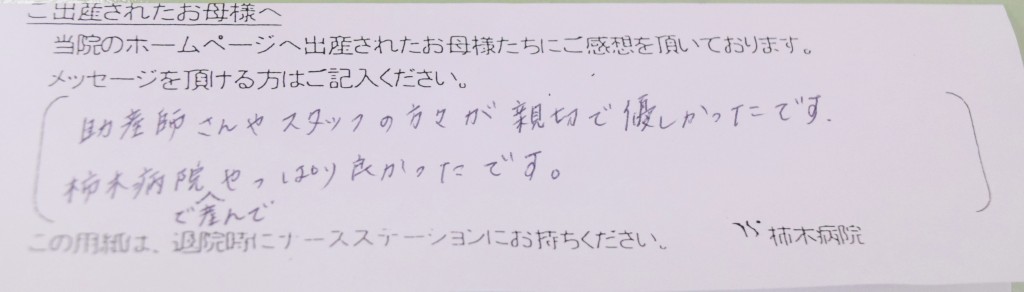 ご出産されたお母様へ
当院のホームページへ出産されたお母様たちにご感想を頂いております。
メッセージを頂ける方はご記入ください。
助産師さんやスタッフの方々が親切で優しかったです.
柿木病院やっぱり良かったです。
で産んで
この用紙は、退院時にナースステーションにお持ちください。
柿木病院